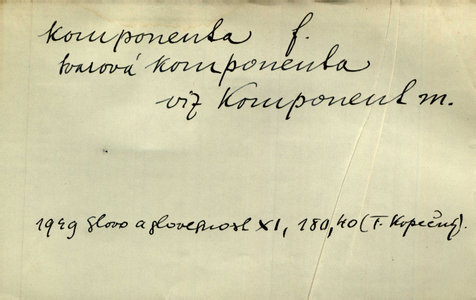 komponenta f.
tvarová komponenta
viz Komponent m.
1949 Slovo a slovesnost XI, 180, 40 (F. Kopečný).